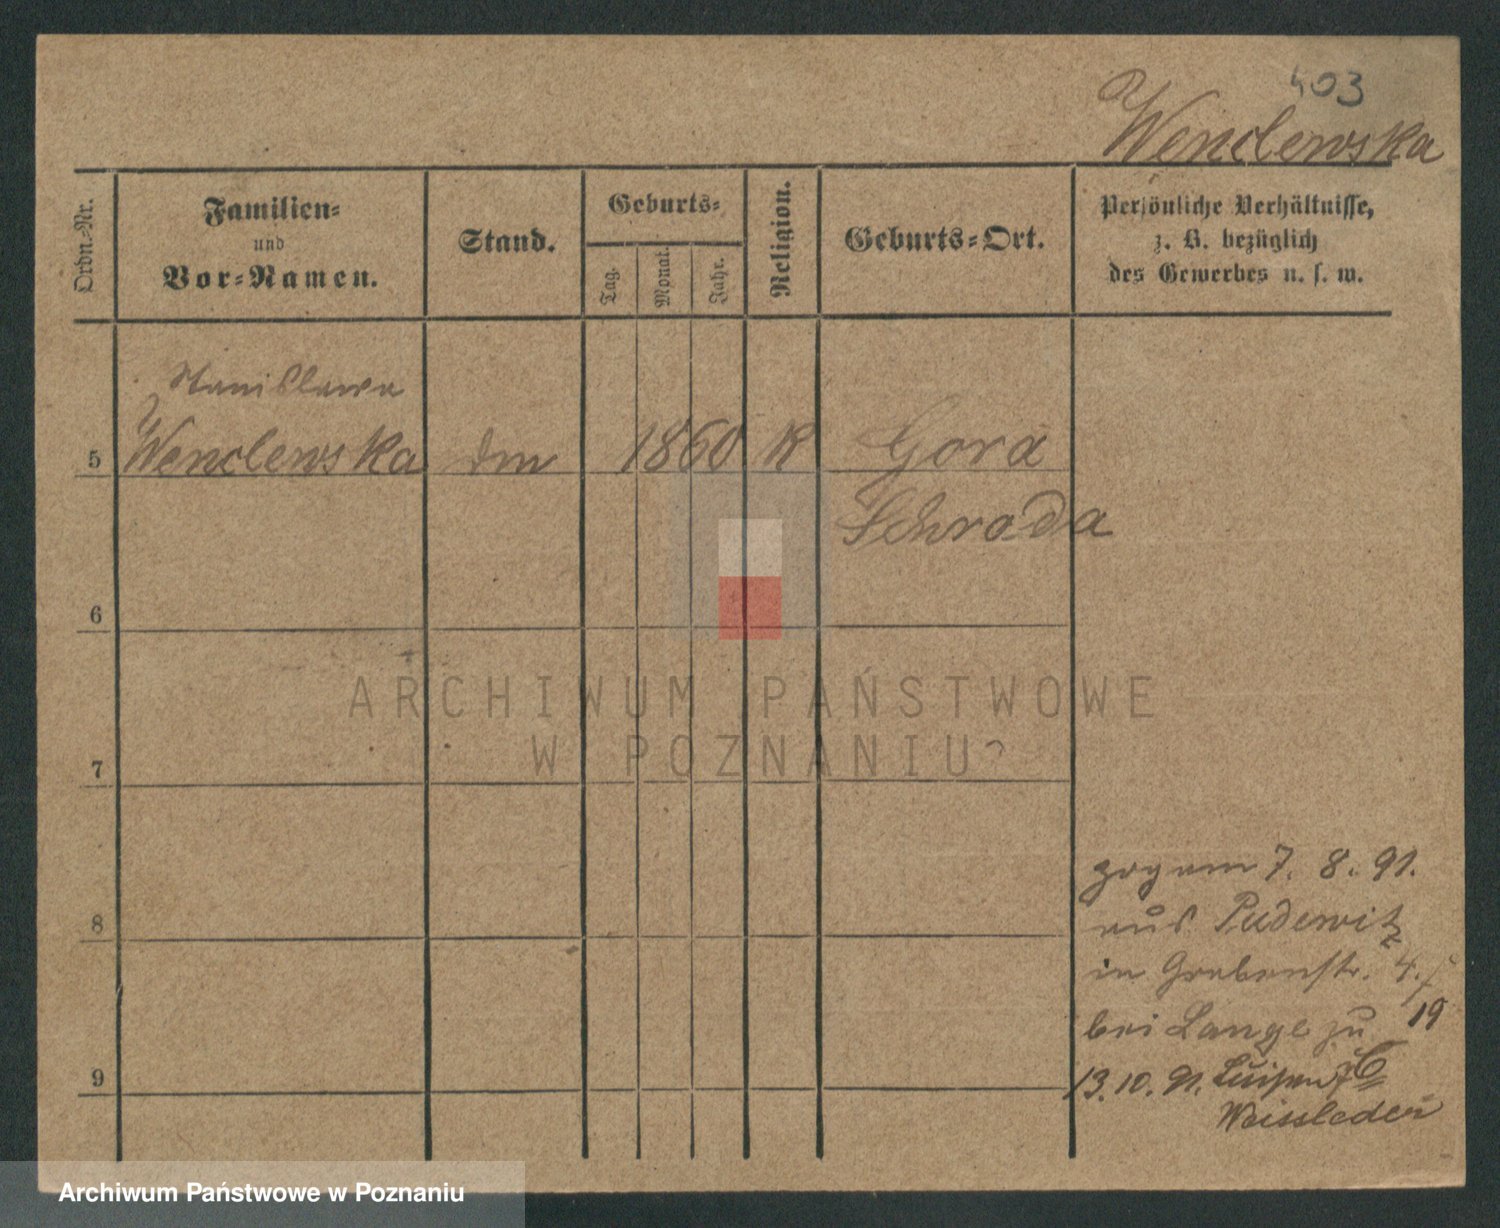 403
Wenclewska
Ordn.-Nr.
Familien-
und
Vor-Namen.
Stand.
Geburts-
Tag.
Monat.
Jahr.
Religion.
Geburts-Ort.
Persönliche Verhältnisse,
z. B. bezüglich
des Gewerbes u. s. w.
Stanislawa
5 Wenclewska 1860 K Gora
Schroda
6
7
8
9
ARCHIWUM PAŃSTWOWE
W POZNANIU
zog am 7. 8. 91.
aus Pudewitz
in Grabenstr. 4.
19
bei Lange zu
13. 10. 91. Luisen
Weissleder
Archiwum Państwowe w Poznaniu